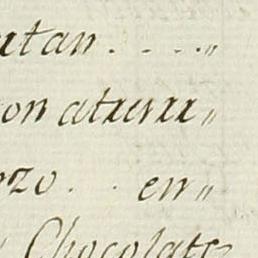 atan . . . . „
on atraxa „
rzo . . en „
Chocolate